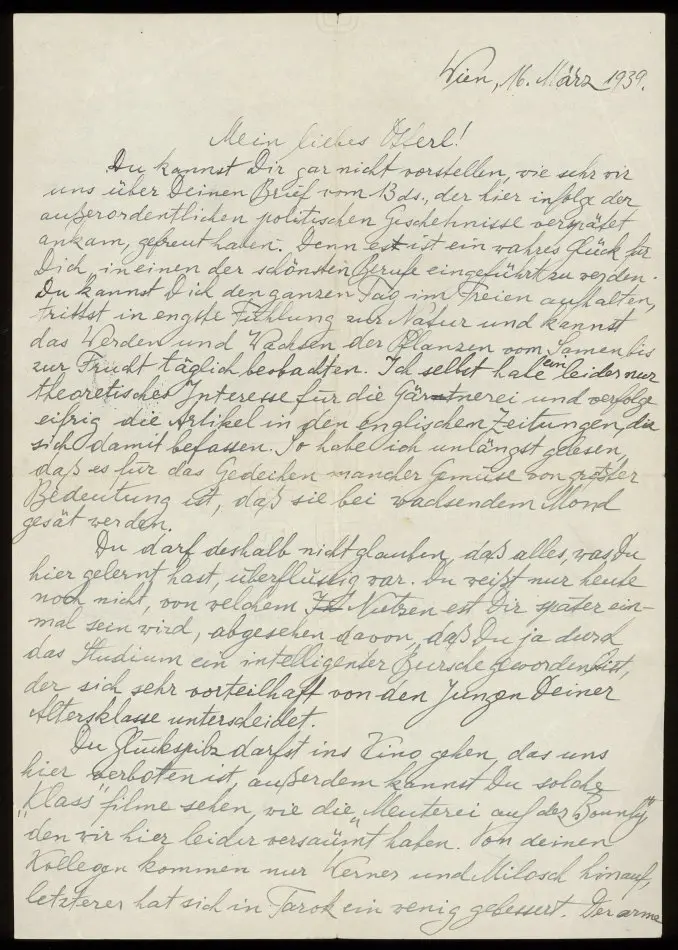 Wien, 16. März 1939.
Mein liebes Otterl!
Du kannst Dir gar nicht vorstellen, wie sehr wir
uns über Deinen Brief vom 13 ds., der hier infolge der
außerordentlichen politischen Geschehnisse verspätet
ankam, gefreut haben. Denn est ist ein wahres Glück für
Dich, in einen der schönsten Berufe eingeführt zu werden.
Du kannst Dich den ganzen Tag im Freien aufhalten,
trittst in engste Fühlung zur Natur und kannst
das Werden und Wachsen der Pflanzen vom Samen bis
zur Frucht täglich beobachten. Ich selbst habe ein leider nur
theoretisches Interesse für die Gärtnerei und verfolge
eifrig die Artikel in den englischen Zeitungen, die
sich damit befassen. So habe ich unlängst gelesen,
daß es für das Gedeihen mancher Gemüse von größter
Bedeutung ist, daß sie bei wachsendem Mond
gesät werden.
Du darf deshalb nicht glauben, daß alles, was Du
hier gelernt hast, überflüssig war. Du weißt nur heute
noch nicht, von welchem Nutzen est Dir später ein-
mal sein wird, abgesehen davon, daß Du ja durch
das Studium ein intelligenter Bursche geworden bist,
der sich sehr vorteilhaft von den Jungen Deiner
Altersklasse unterscheidet.
Du Glückspilz darfst ins Kino gehen, das uns
hier verboten ist, außerdem kannst Du solche
"Klass" filme sehen, wie die "Meuterei auf der Bounty"
den wir hier leider versäumt haben. Von deinen
Kollegen kommen nur Werner und Milosch hinauf,
letzterer hat sich in Tarok ein wenig gebessert. Der arme